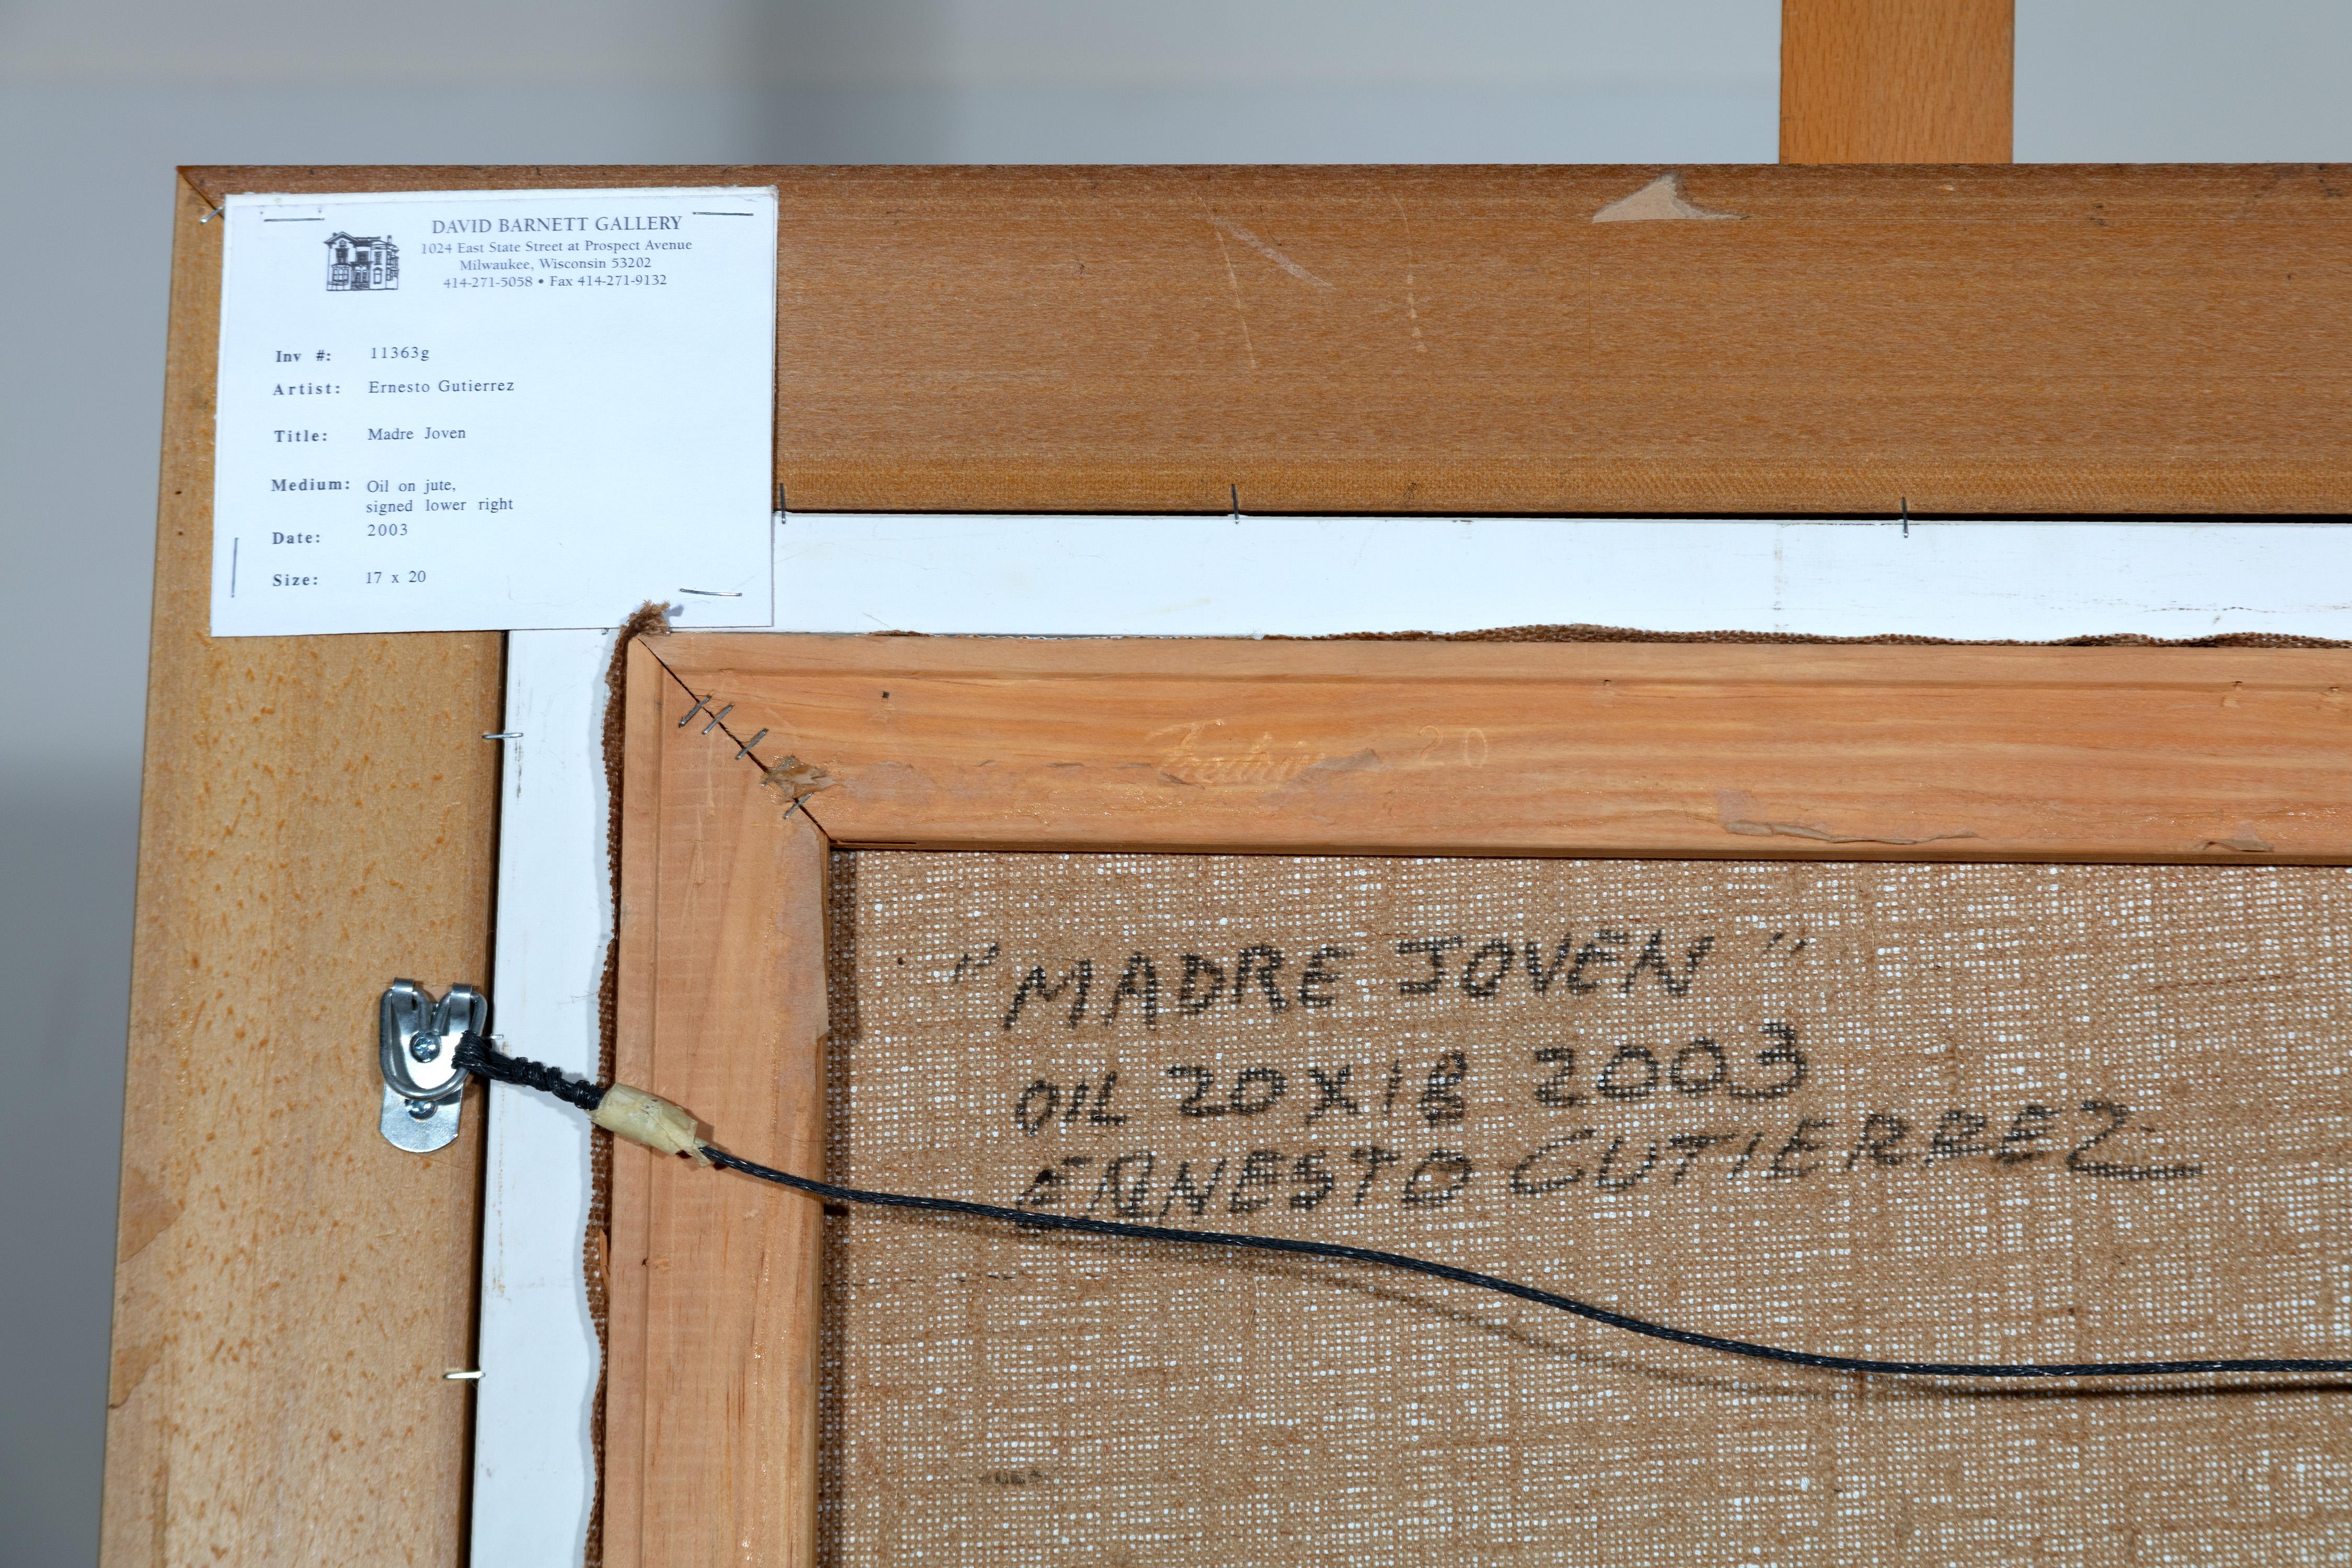 DAVID BARNETT GALLERY
1024 East State Street at Prospect Avenue
Milwaukee, Wisconsin 53202
414-271-5058 • Fax 414-271-9132
Inv #: 11363g
Artist: Ernesto Gutierrez
Title: Madre Joven
Medium: Oil on jute,
signed lower right
Date: 2003
Size: 17 x 20
20
"MADRE JOVEN"
OIL 20X18 2003
ERNESTO GUTIERREZ